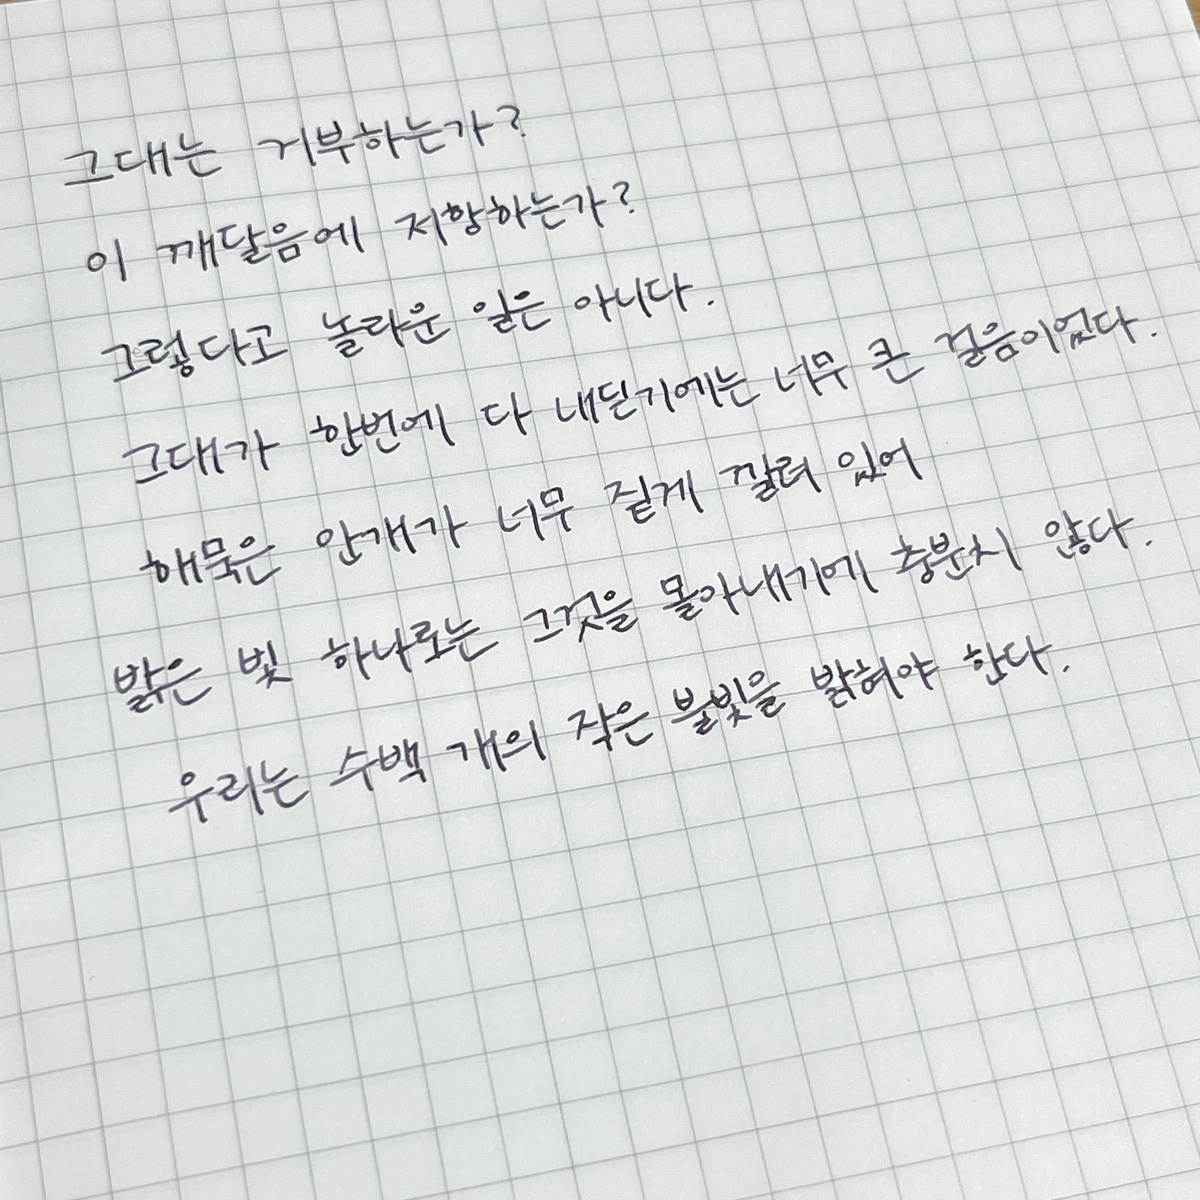 그대는 거부하는가?
이 깨달음에 저항하는가?
그렇다고 놀라운 일은 아니다.
그대가 한번에 다 내딛기에는 너무 큰 걸음이었다.
해묵은 안개가 너무 짙게 깔려 있어
밝은 빛 하나로는 그것을 몰아내기에 충분치 않다.
우리는 수백 개의 작은 불빛을 밝혀야 한다.